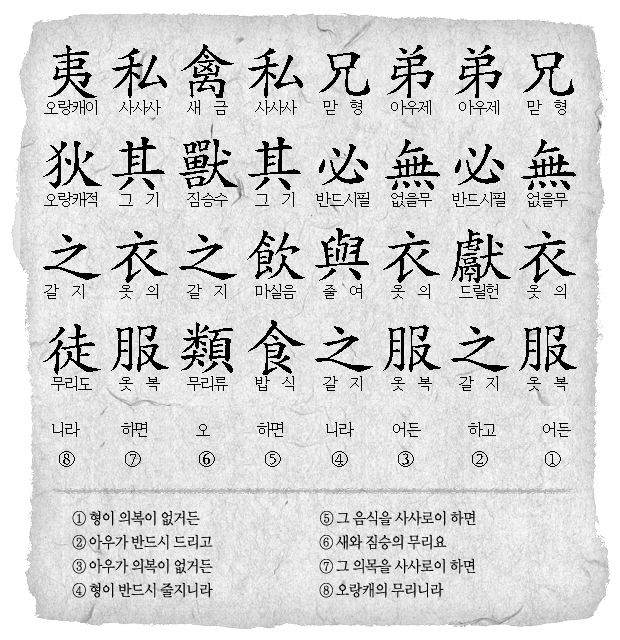 兄 맏 형 無 없을무 衣 옷 의 服 옷 복 어든 ①
弟 아우제 必 반드시필 獻 드릴헌 之 갈 지 하고 ②
弟 아우제 無 없을무 衣 옷 의 服 옷 복 어든 ③
兄 맏 형 必 반드시필 與 줄 여 之 갈 지 니라 ④
私 사사사 其 그 기 飮 마실음 食 밥 식 하면 ⑤
禽 새 금 獸 짐승수 之 갈 지 類 무리류 오 ⑥
私 사사사 其 그 기 衣 옷 의 服 옷 복 하면 ⑦
夷 오랑캐이 狄 오랑캐적 之 갈 지 徒 무리도 니라 ⑧
① 형이 의복이 없거든
② 아우가 반드시 드리고
③ 아우가 의복이 없거든
④ 형이 반드시 줄지니라
⑤ 그 음식을 사사로이 하면
⑥ 새와 짐승의 무리요
⑦ 그 의목을 사사로이 하면
⑧ 오랑캐의 무리니라